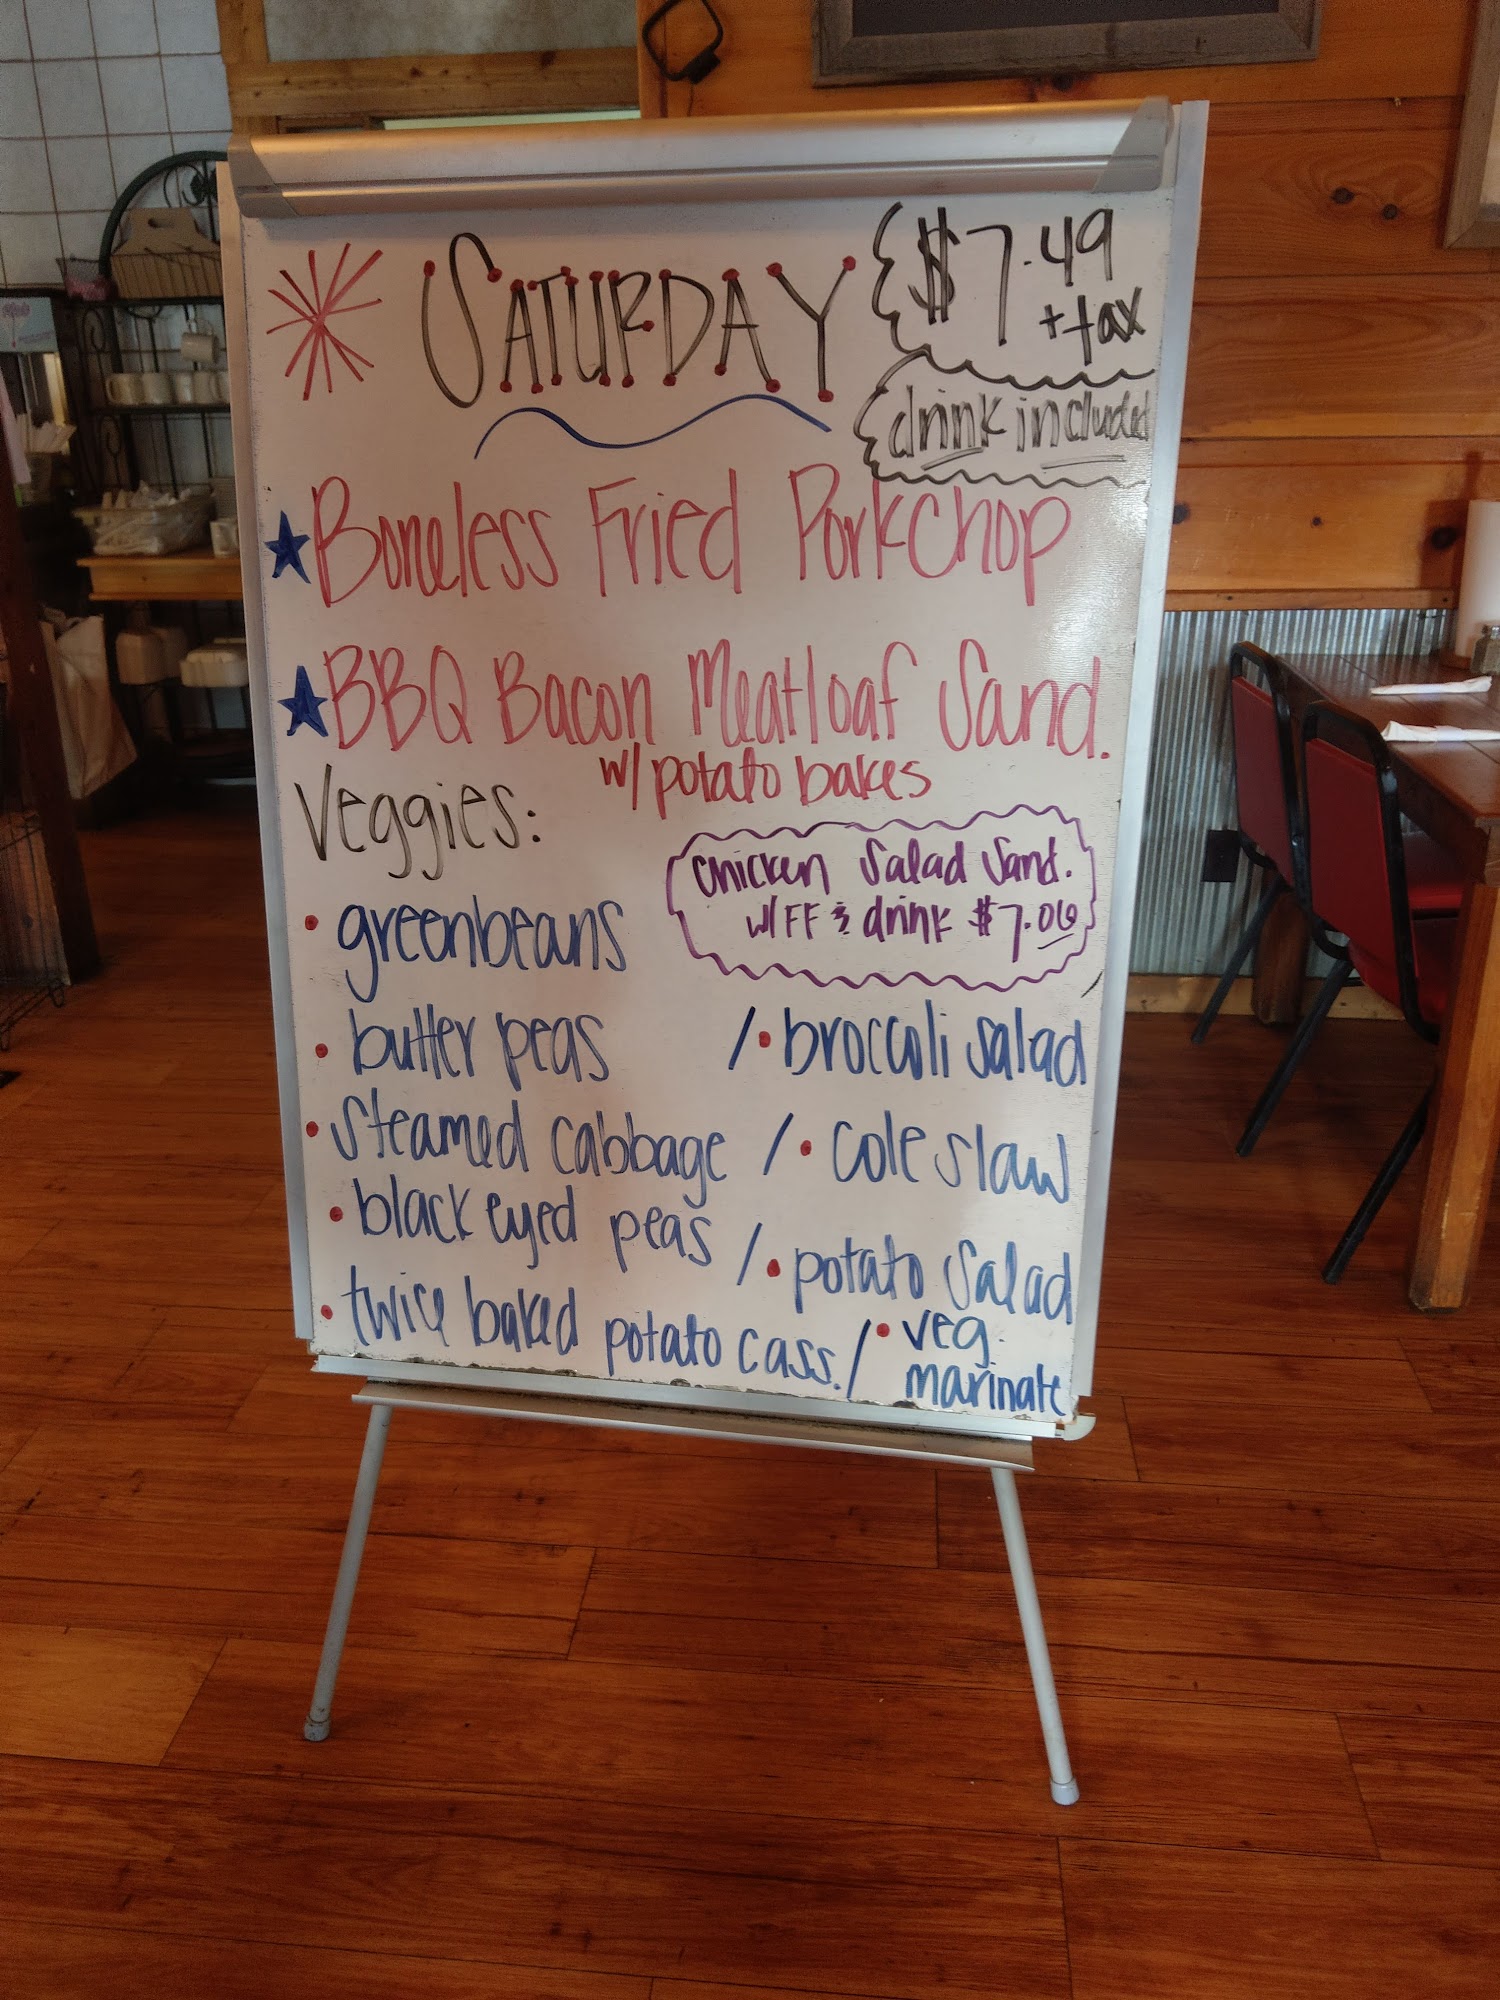 SATURDAY
$7.49
+ tax
drink included
Boneless Fried Porkchop
BBQ Bacon Meatloaf Sand.
w/ potato bakes
Veggies:
chicken salad sand.
w/ FF & drink $7.06
• greenbeans
• butter peas / • broccoli salad
• steamed cabbage / • coleslaw
• black eyed peas / • potato salad
• twice baked potato cass. / • veg.
marinate